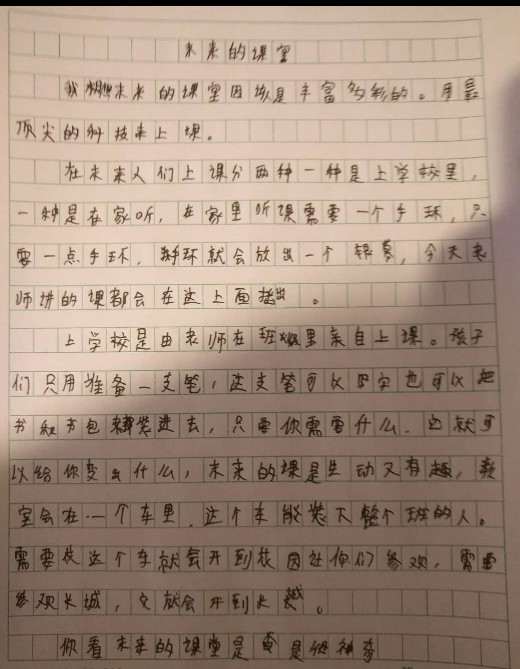 未来的课室
我未来的课室因该是丰富多彩的。用最
顶尖的科技来上课。
在未来人们上课分两种一种是上学校里,
一种是在家听,在家里听课需要一个手环,只
要一点手环,环就会放出一个银幕,今天老
师讲的课都会在这上面播出。
上学校是由老师在班级里亲自上课。孩子
们只用准备一支笔,这支笔可以写字也可以把
书和书包装进去,只要你需要什么.它就可
以给你变出什么,未来的课是生动又有趣,教
室会在一个车里.这个车能装下整个班的人。
需要去这个车就会开到让你们参观,需要
参观长城,它就会开到长城。
你看未来的课堂是是很神奇